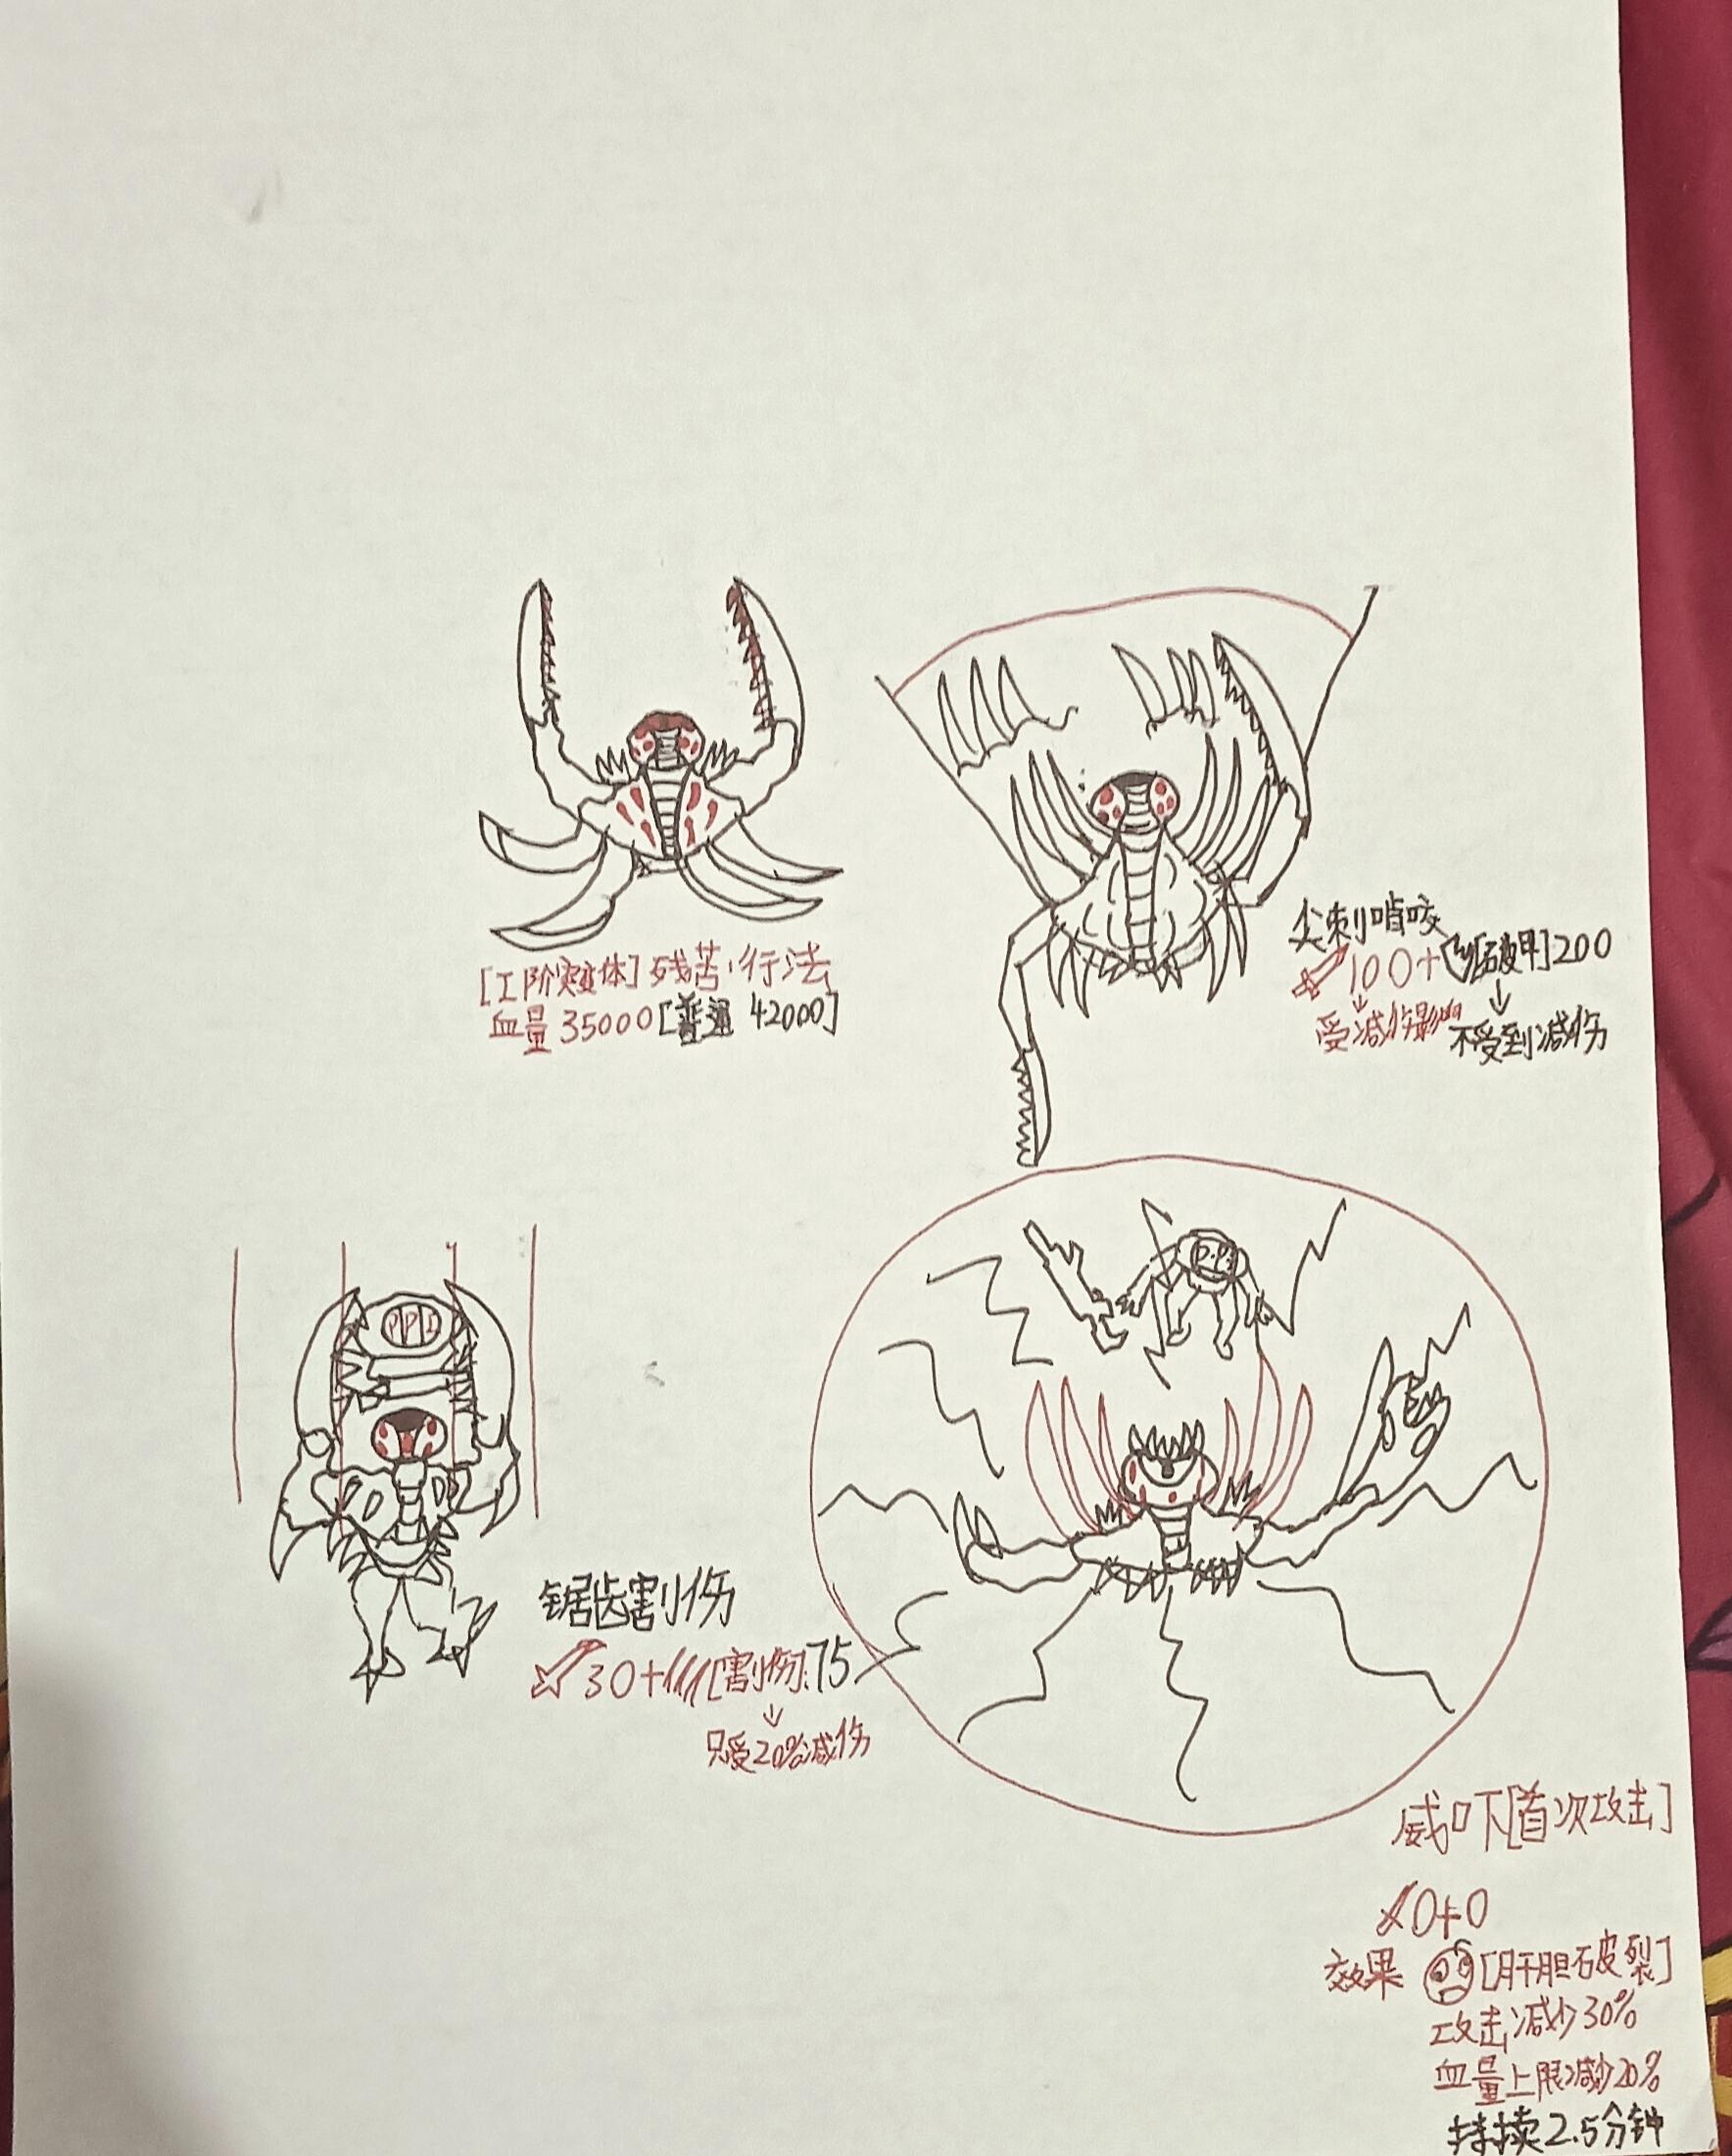 [工阶突变体] 残苦行法
血量 35000 [普通 42000]
尖刺啃咬
100+ [破甲] 200
受减伤影响 不受到减伤
锯齿割伤
30+ [割伤]:75
只受20%减伤
威吓[首次攻击]
0+0
效果 [肝胆破裂]
攻击减少30%
血量上限减少20%
持续2.5分钟